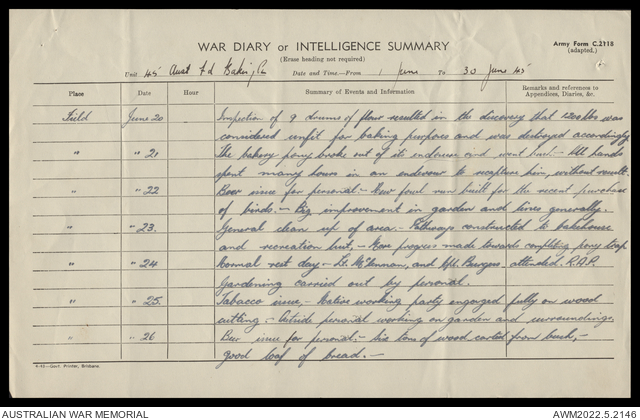 WAR DIARY or INTELLIGENCE SUMMARY
(Erase heading not required)
Army Form C.2118
(adapted.)
Unit 45 Aust Fd Baking Date and Time.—From 1 June To 30 June 45
Place Date Hour Summary of Events and Information Remarks and references to Appendices, Diaries, &c.
Field June 20 Inspection of 9 drums of flour resulted in the discovery that 1200 lbs was
considered unfit for baking purposes and was destroyed accordingly
" " 21 The bakery pony broke out of its enclosure and went bush. - All hands
spent many hours in an endeavour to recapture him, without result.
" " 22 Beer issue for personal. - New fowl run built for the recent purchase
of birds. - Big improvement in garden and lines generally.
" " 23. General clean up of area. - Pathways constructed to bakehouse
and recreation hut, - More progress made towards completing pony trap
" " 24 Normal rest day - Lt. McLennan, and Cpl. Burgess attended R.A.P.
Gardening carried out by personal.
" " 25. Tabacco issue, - Native working party engarged fully on wood
cutting. - Outside personal working on garden and surroundings.
" " 26 Beer issue for personal. - Six tons of wood carted from bush, -
good loaf of bread. -
4-45—Govt. Printer, Brisbane.
AUSTRALIAN WAR MEMORIAL
AWM2022.5.2146